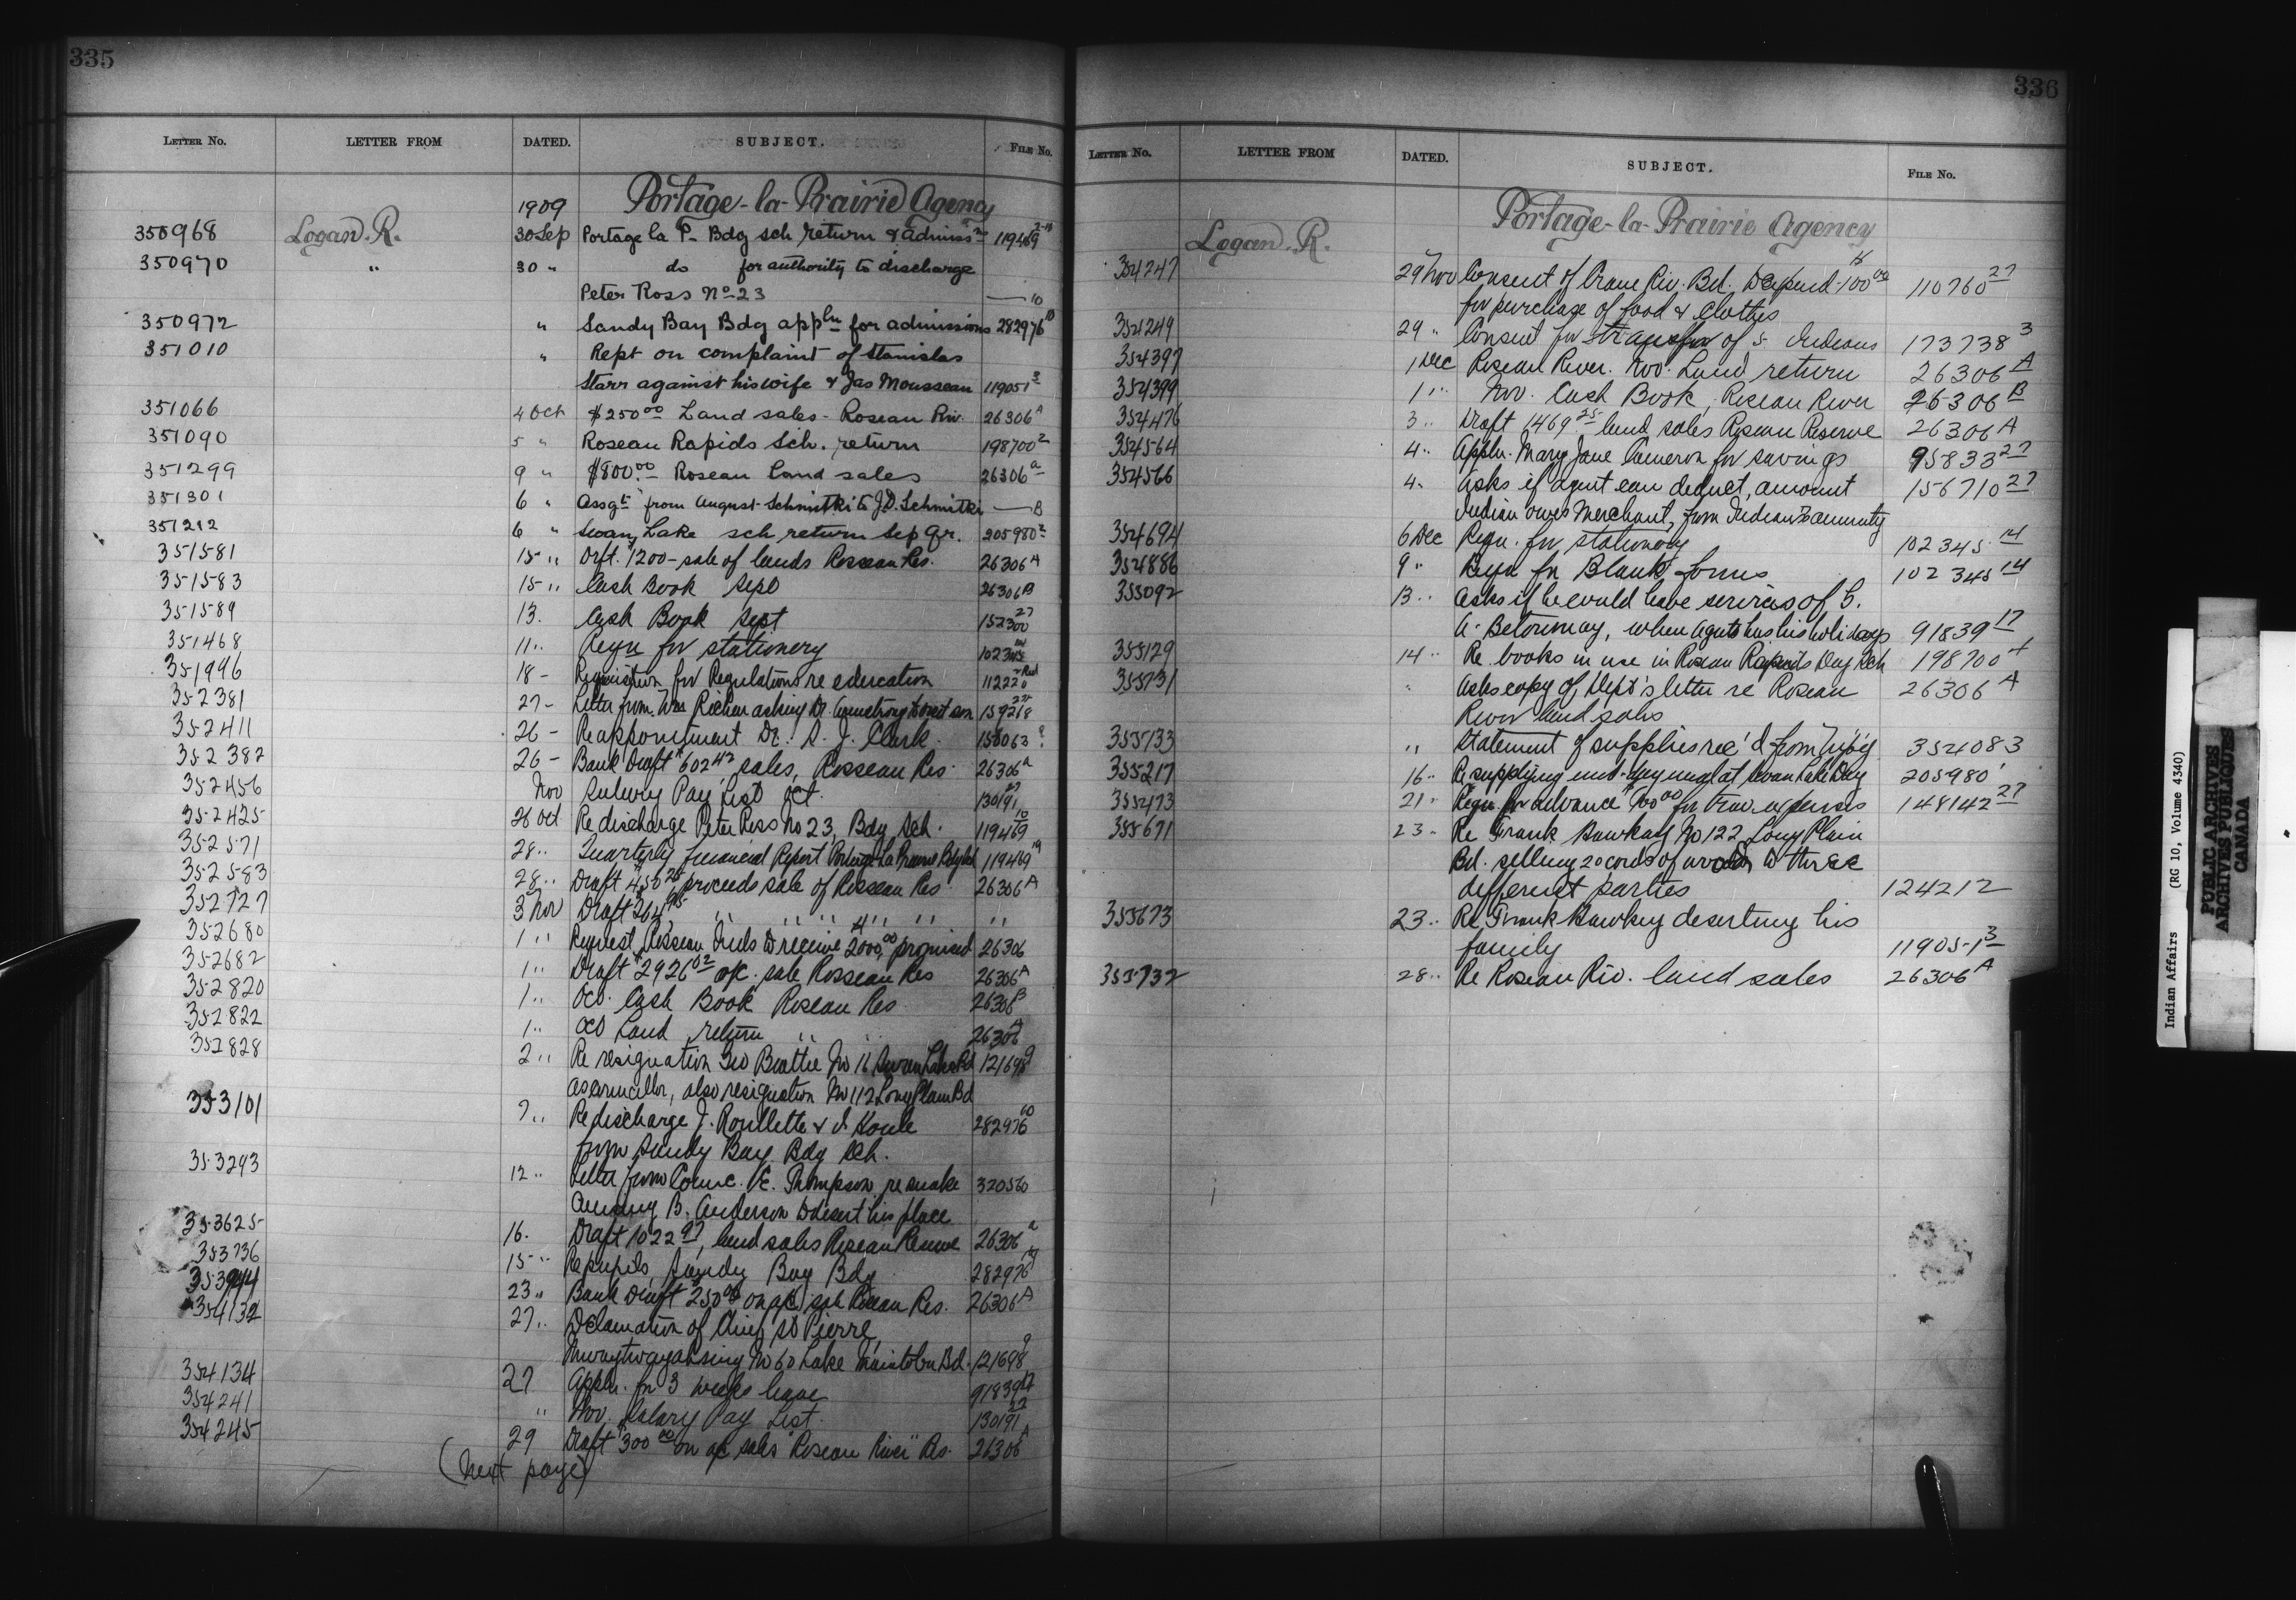 335
LETTER No. LETTER FROM DATED. SUBJECT. FILE No.
1909 Portage-la-Prairie Agency
350968 Logan. R. 30 Sep Portage la P- Bdg sch return & admiss ns 119469 2-10
350970 " 30 " do for authority to discharge
Peter Ross No 23 —— 10
350972 " Sandy Bay Bdg appln for admissions 282976 10
351010 " Rept on complaint of Stanislas
Starr against his wife & Jas Mousseau 119051 3
351066 4 Oct $250 00 Land sales - Roseau Riv. 26306 A
351090 5 " Roseau Rapids Sch. return 198700 2
351299 9 " $800.00 - Roseau Land sales 26306 a
351301 6 " Assgt from August Schmitki to J.D. Schmitki —— B
351212 6 " Swan Lake sch return Sep Qr. 205980 2
351581 15 " Drft. 1200 - sale of lands Rosseau Res. 26306 A
351583 15 " Cash Book Sept 26306 B
351589 13. Cash Book Sept 152300 27
351468 11 " Reqn for stationery 102345
351996 18 - Requisition for Regulations re education 112220
352381 27 - Letter from Wm asking Dr. Armstrong to visit son 159218 27
352411 26 - Re appointment Dr. S. J. Clark 158063
352382 26 - Bank Draft $602 42 sales, Rosseau Res. 26306 a
352456 Nov Salary Pay List Oct. 130191 27
352425 26 Oct Re discharge Peter Ross No 23, Bdg Sch. 119469 10
352571 28 " Quarterly Financial Report Portage La Prairie Bdg Sch 119469
352583 28 " Draft 456 25 proceeds sale of Rosseau Res. 26306 A
352727 3 Nov Draft 264 75 " " " " " " "
352680 1 " Request Rosseau Inds to receive $2000 00, promised 26306
352682 1 " Draft $2926 02 a/c. sale Rosseau Res 26306 A
352820 1 " Oct. Cash Book Roseau Res 26306 B
352822 1 " Oct Land return " " 26306 A
352828 2 " Re resignation Geo Beattie No 16 Swan Lake Bd 121698 9
as councillor, also resignation No 112 Long Plain Bd
353101 7 " Re discharge J. Roullette & J. Houle 282976 10
from Sandy Bay Bdg Sch.
353293 12 " Letter from Counc. Thompson, re snake 320560
causing B. Anderson to desert his place
353625 16. Draft 1022 97, land sales Roseau Reserve 26306 a
353736 15 " Re pupils, Sandy Bay Bdg 282976
353944 23 " Bank Draft 250 00 on a/c sale Roseau Res. 26306 A
354132 27 " Declaration of Chief, St Pierre,
No 60 Lake Manitoba Bd. 121698 9
354134 27 Appln. for 3 weeks leave 91839 17
354241 " Nov. Salary Pay List. 130191 27
354245 29 Draft $300 00 on a/c sales "Roseau River" Res. 26306 A
(Next page)
336
LETTER No. LETTER FROM DATED. SUBJECT. FILE No.
Logan. R. Portage-la-Prairie Agency
354247 29 Nov Consent of Crane Riv. Bd. to expend $100 00 110760 27
for purchase of food & clothes
354249 29 " Consent for transfer of 5 Indians 173738 3
354397 1 Dec Roseau River. Nov. Land return 26306 A
354399 1 " Nov. Cash Book, Roseau River 26306 B
354476 3 " Draft 1469 25 land sales Roseau Reserve 26306 A
354564 4 " Appln. Mary Jane Cameron for savings 95833 27
354566 4 " Asks if agent can deduct, amount 156710 27
Indian owes Merchant, from Indian's annuity
354694 6 Dec Reqn. for stationery 102345 14
354886 9 " Reqn for Blank forms 102345 14
355092 13 " Asks if he could have services of S.
A. Betournay, when Agent has his holidays 91839 17
355129 14 " Re books in use in Roseau Rapids Day Sch 198700 4
355131 " Asks copy of Dept's letter re Roseau 26306 A
River land sales
355133 " Statement of supplies rec'd from 354083
355217 16 " Re supplying mid-day meal at Swan Lake Day 205980 1
355473 21 " Reqn. for advance $100 00 for trav. expenses 148142 27
355671 23 - Re Frank Hawkay No 122, Long Plain
Bd. selling 20 cords of wood to three
different parties 124212
355673 23 " Re Frank Hawkey deserting his
family 119051 3
355732 28 " Re Roseau Riv. land sales 26306 A
Indian Affairs (RG 10, Volume 4340)
PUBLIC ARCHIVES
ARCHIVES PUBLIQUES
CANADA